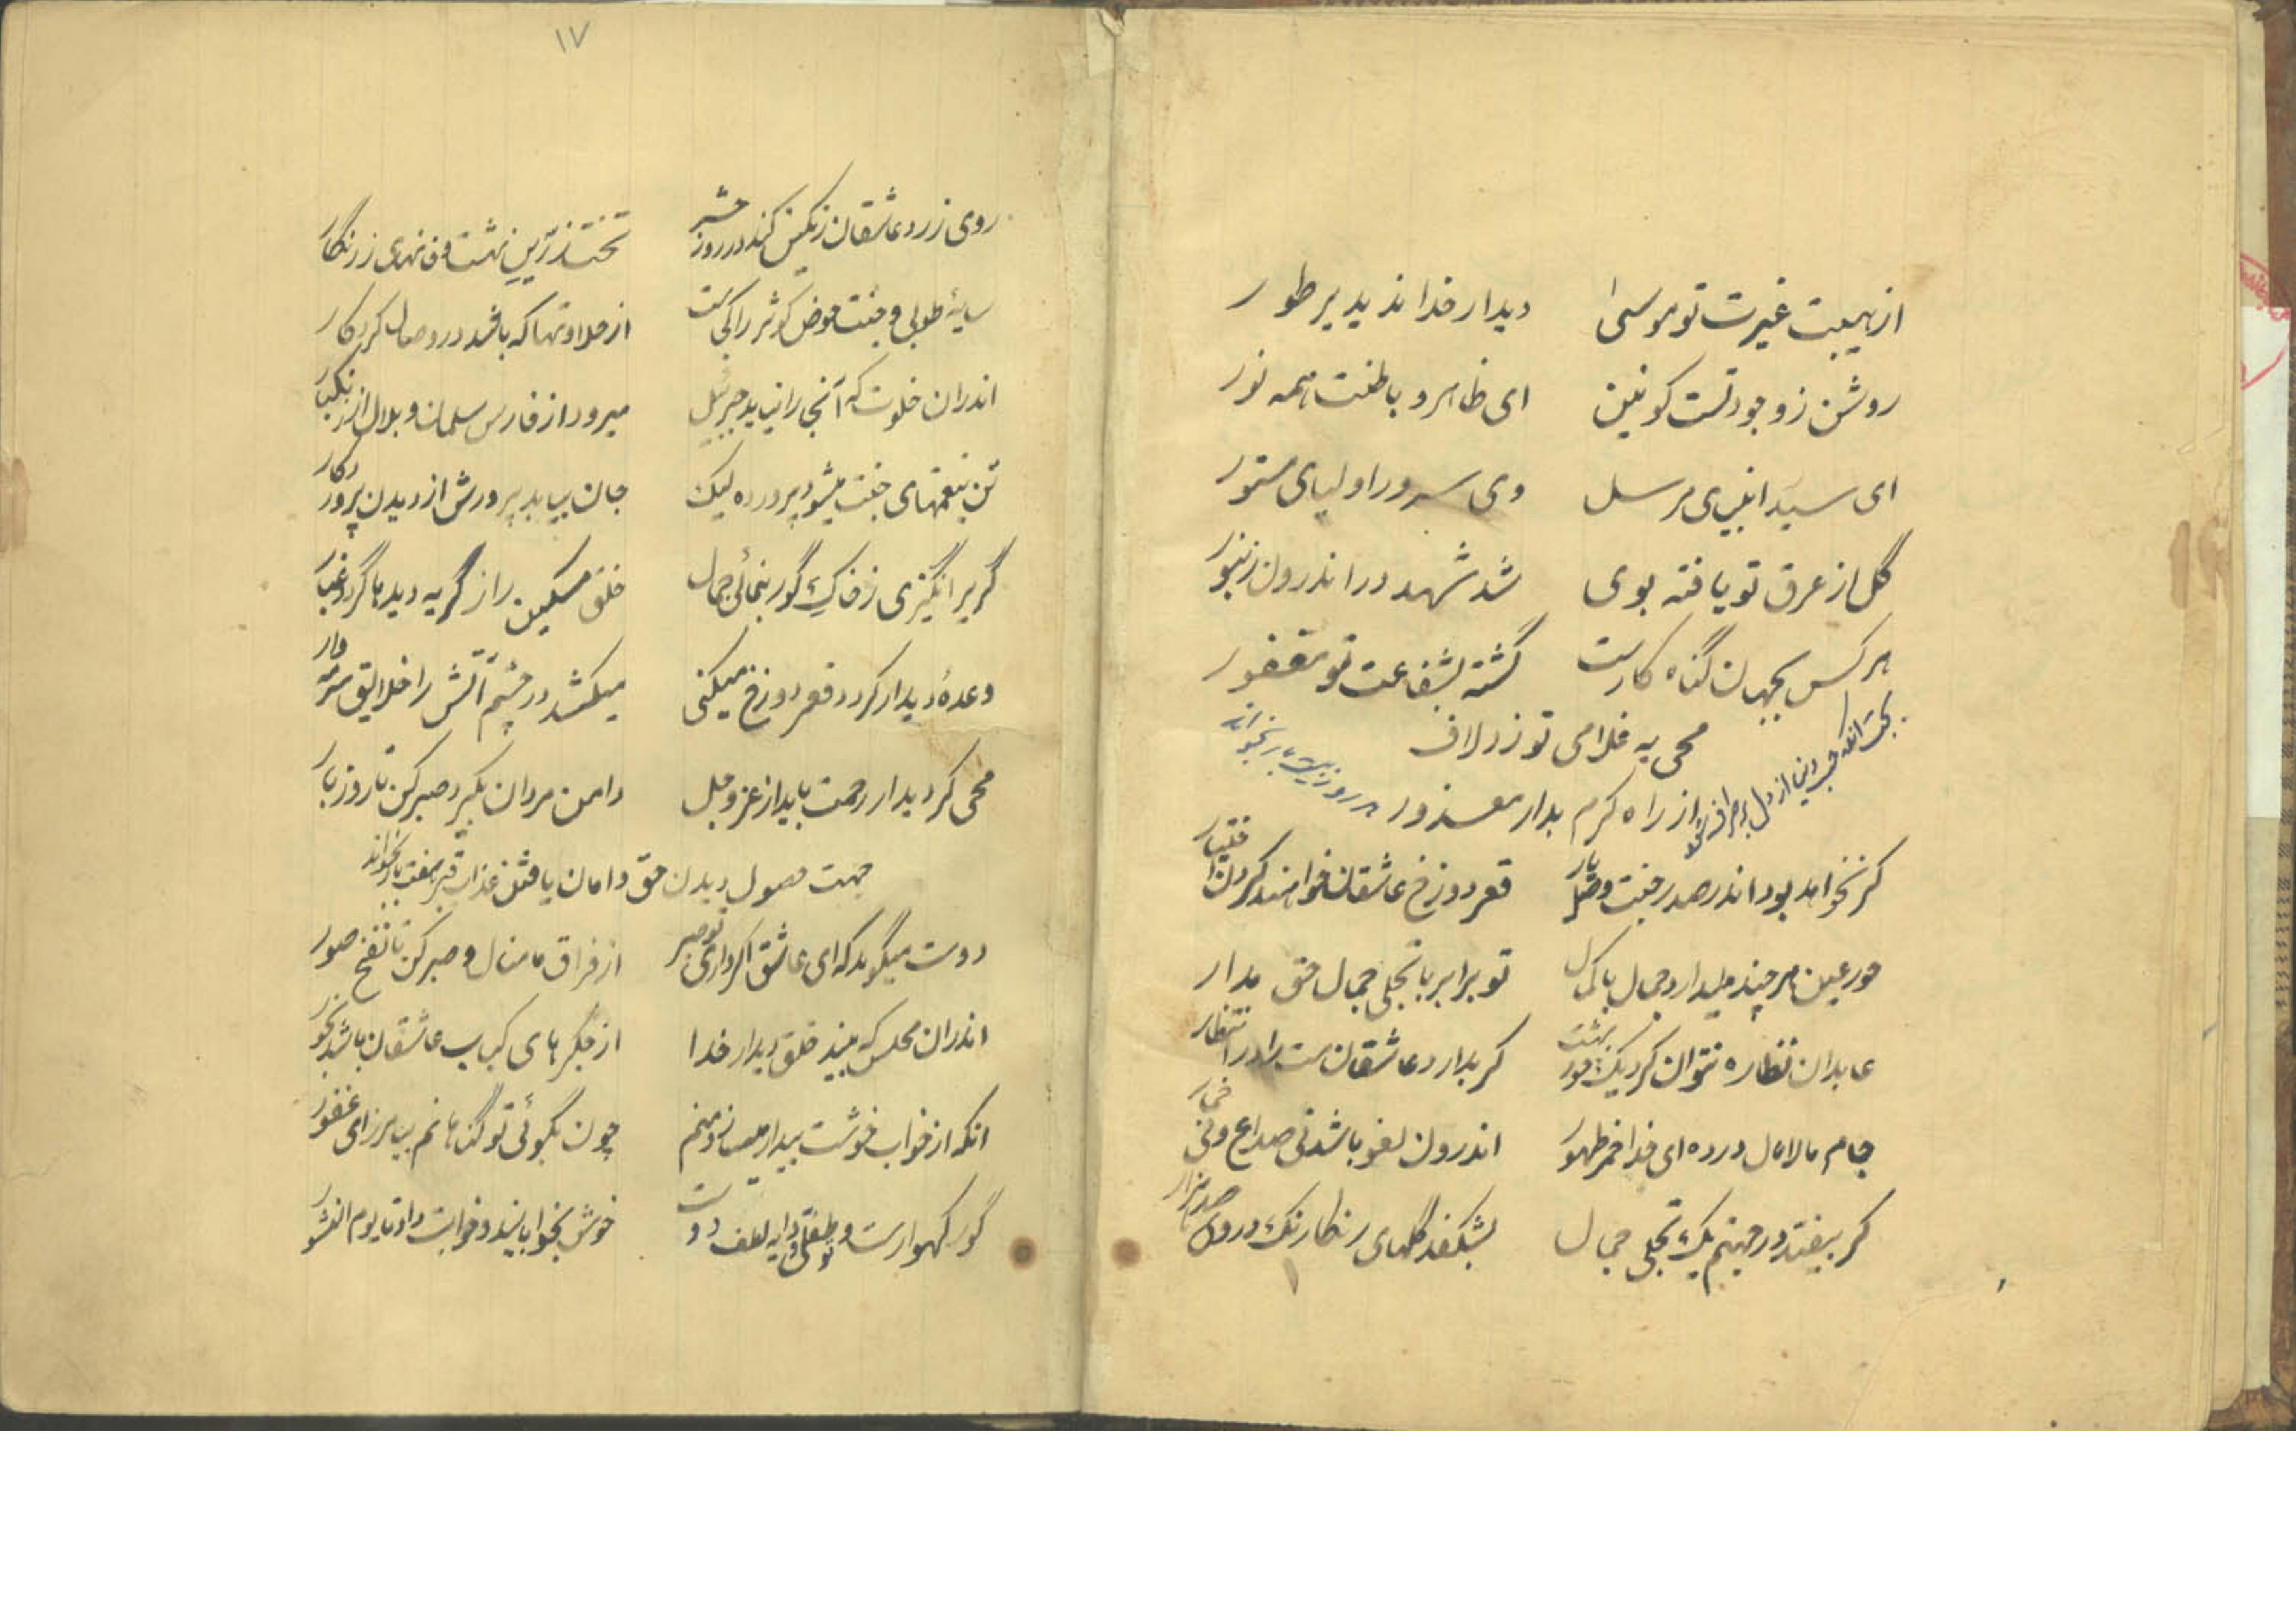 از هیبت غیرت تو موسی دیدار خدا ندید بر طور
روشن ز وجود تست کونین ای ظاهر و باطنت همه نور
ای سید انبیای مرسل وی سرور اولیای مستور
گل از عرق تو یافته بوی شد شهد در اندرون زنبور
هر کس بجهان گناه کارست گشته بشفاعت تو مغفور
محی به غلامی تو زد لاف
از راه کرم بدار معذور
بجهت انکه حب دنیا از دل برطرف شود در روز بیست بار بخواند
کر نخواهد بود اندر صدر جنت وصل یار قعر دوزخ عاشقان خواهند کردن اختیار
حور عین هر چند میدارد جمال باکمال تو برابر با تجلی جمال حق مدار
عابدان نظاره نتوان کرد یک حور بهشت کر بدارد عاشقان ست را در انتظار
جام مالامال در ده ای خدا خمر طهور اندرون لغو باشد نی صداع و نی خمار
کر بیفتد در جهنم یک تجلی جمال بشکفد گلهای رنکارنک در وی صد هزار
۱۷
روی زرد عاشقان رنکین کند در روز حشر تخت زرین بهشت و نهری زرنگار
سایهٔ طوبی و جنت حوض کوثر را کی ست از حلاوتها که باشد در وصال کردکار
اندران خلوت که آنجا را نیابد جبرئیل میرود از فارس سلمان و بلال از زنگبار
تن بنعمتهای جنت میشود پرورده لیک جان بیابد پرورش از دیدن پروردکار
گر برانگیزی ز خاک گور بنمائی جمال خلق مسکین را ز گریه دیدها گردد غبار
وعدهٔ دیدار کر در قعر دوزخ میکنی میکشد در چشم آتش را خلایق سرمه وار
محی کر دیدار رحمت باید از عز و جل دامن مردان بگیر و صبر کن تا روز بار
جهت حصول دیدن حق و امان یافتن عذاب قبر هفت بار بخواند
دوست میگوید که ای عاشق اکر داری تو صبر از فراق ما منال و صبر کن تا نفخ صور
اندران محلس که بیند خلق دیدار خدا از جگرهای کباب عاشقان باشد بخور
انکه از خواب خوشت بیدار میسازد منم چون بگوئی تو گناهانم بیامرز ای غفور
گور کهوارست و تو طفلی و دایه لطف دوست خوش بخواباند و خوابت داد تا یوم النشور